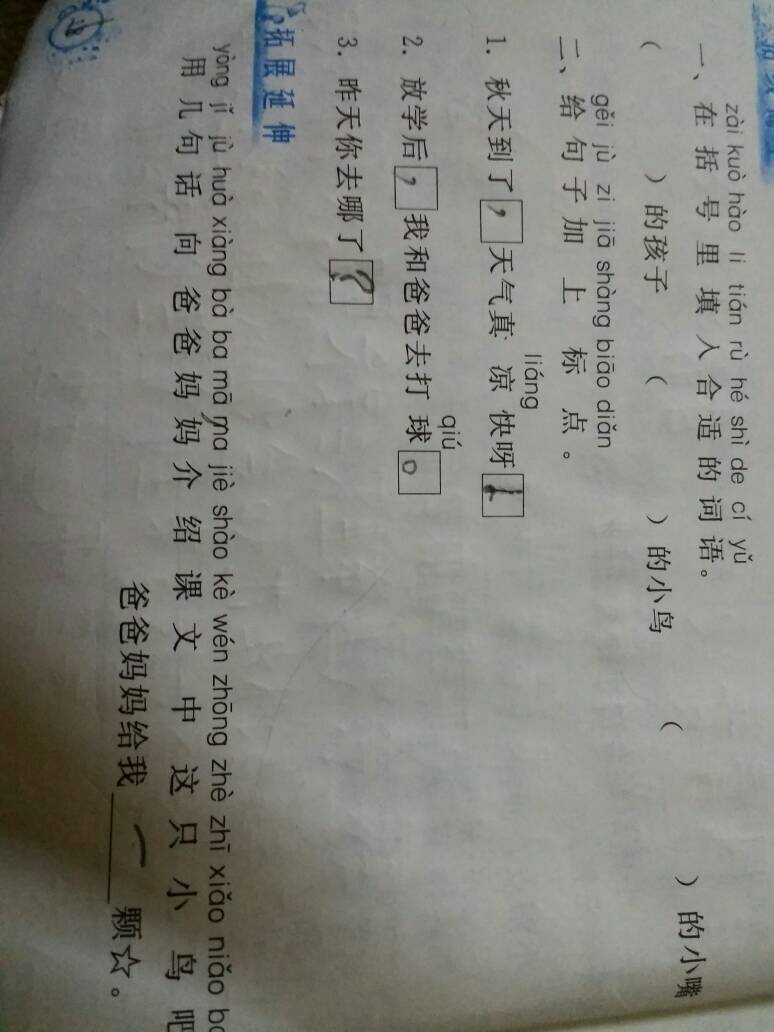 zài kuò hào li tián rù hé shì de cí yǔ
一、在括号里填入合适的词语。
(      )的孩子 (      )的小鸟 (      )的小嘴
gěi jù zi jiā shàng biāo diǎn
二、给句子加上标点。
liáng
1. 秋天到了，天气真凉快呀！
qiú
2. 放学后，我和爸爸去打球。
3. 昨天你去哪了？
拓展延伸
yòng jǐ jù huà xiàng bà ba mā ma jiè shào kè wén zhōng zhè zhī xiǎo niǎo
用几句话向爸爸妈妈介绍课文中这只小鸟吧
爸爸妈妈给我 一 颗☆。